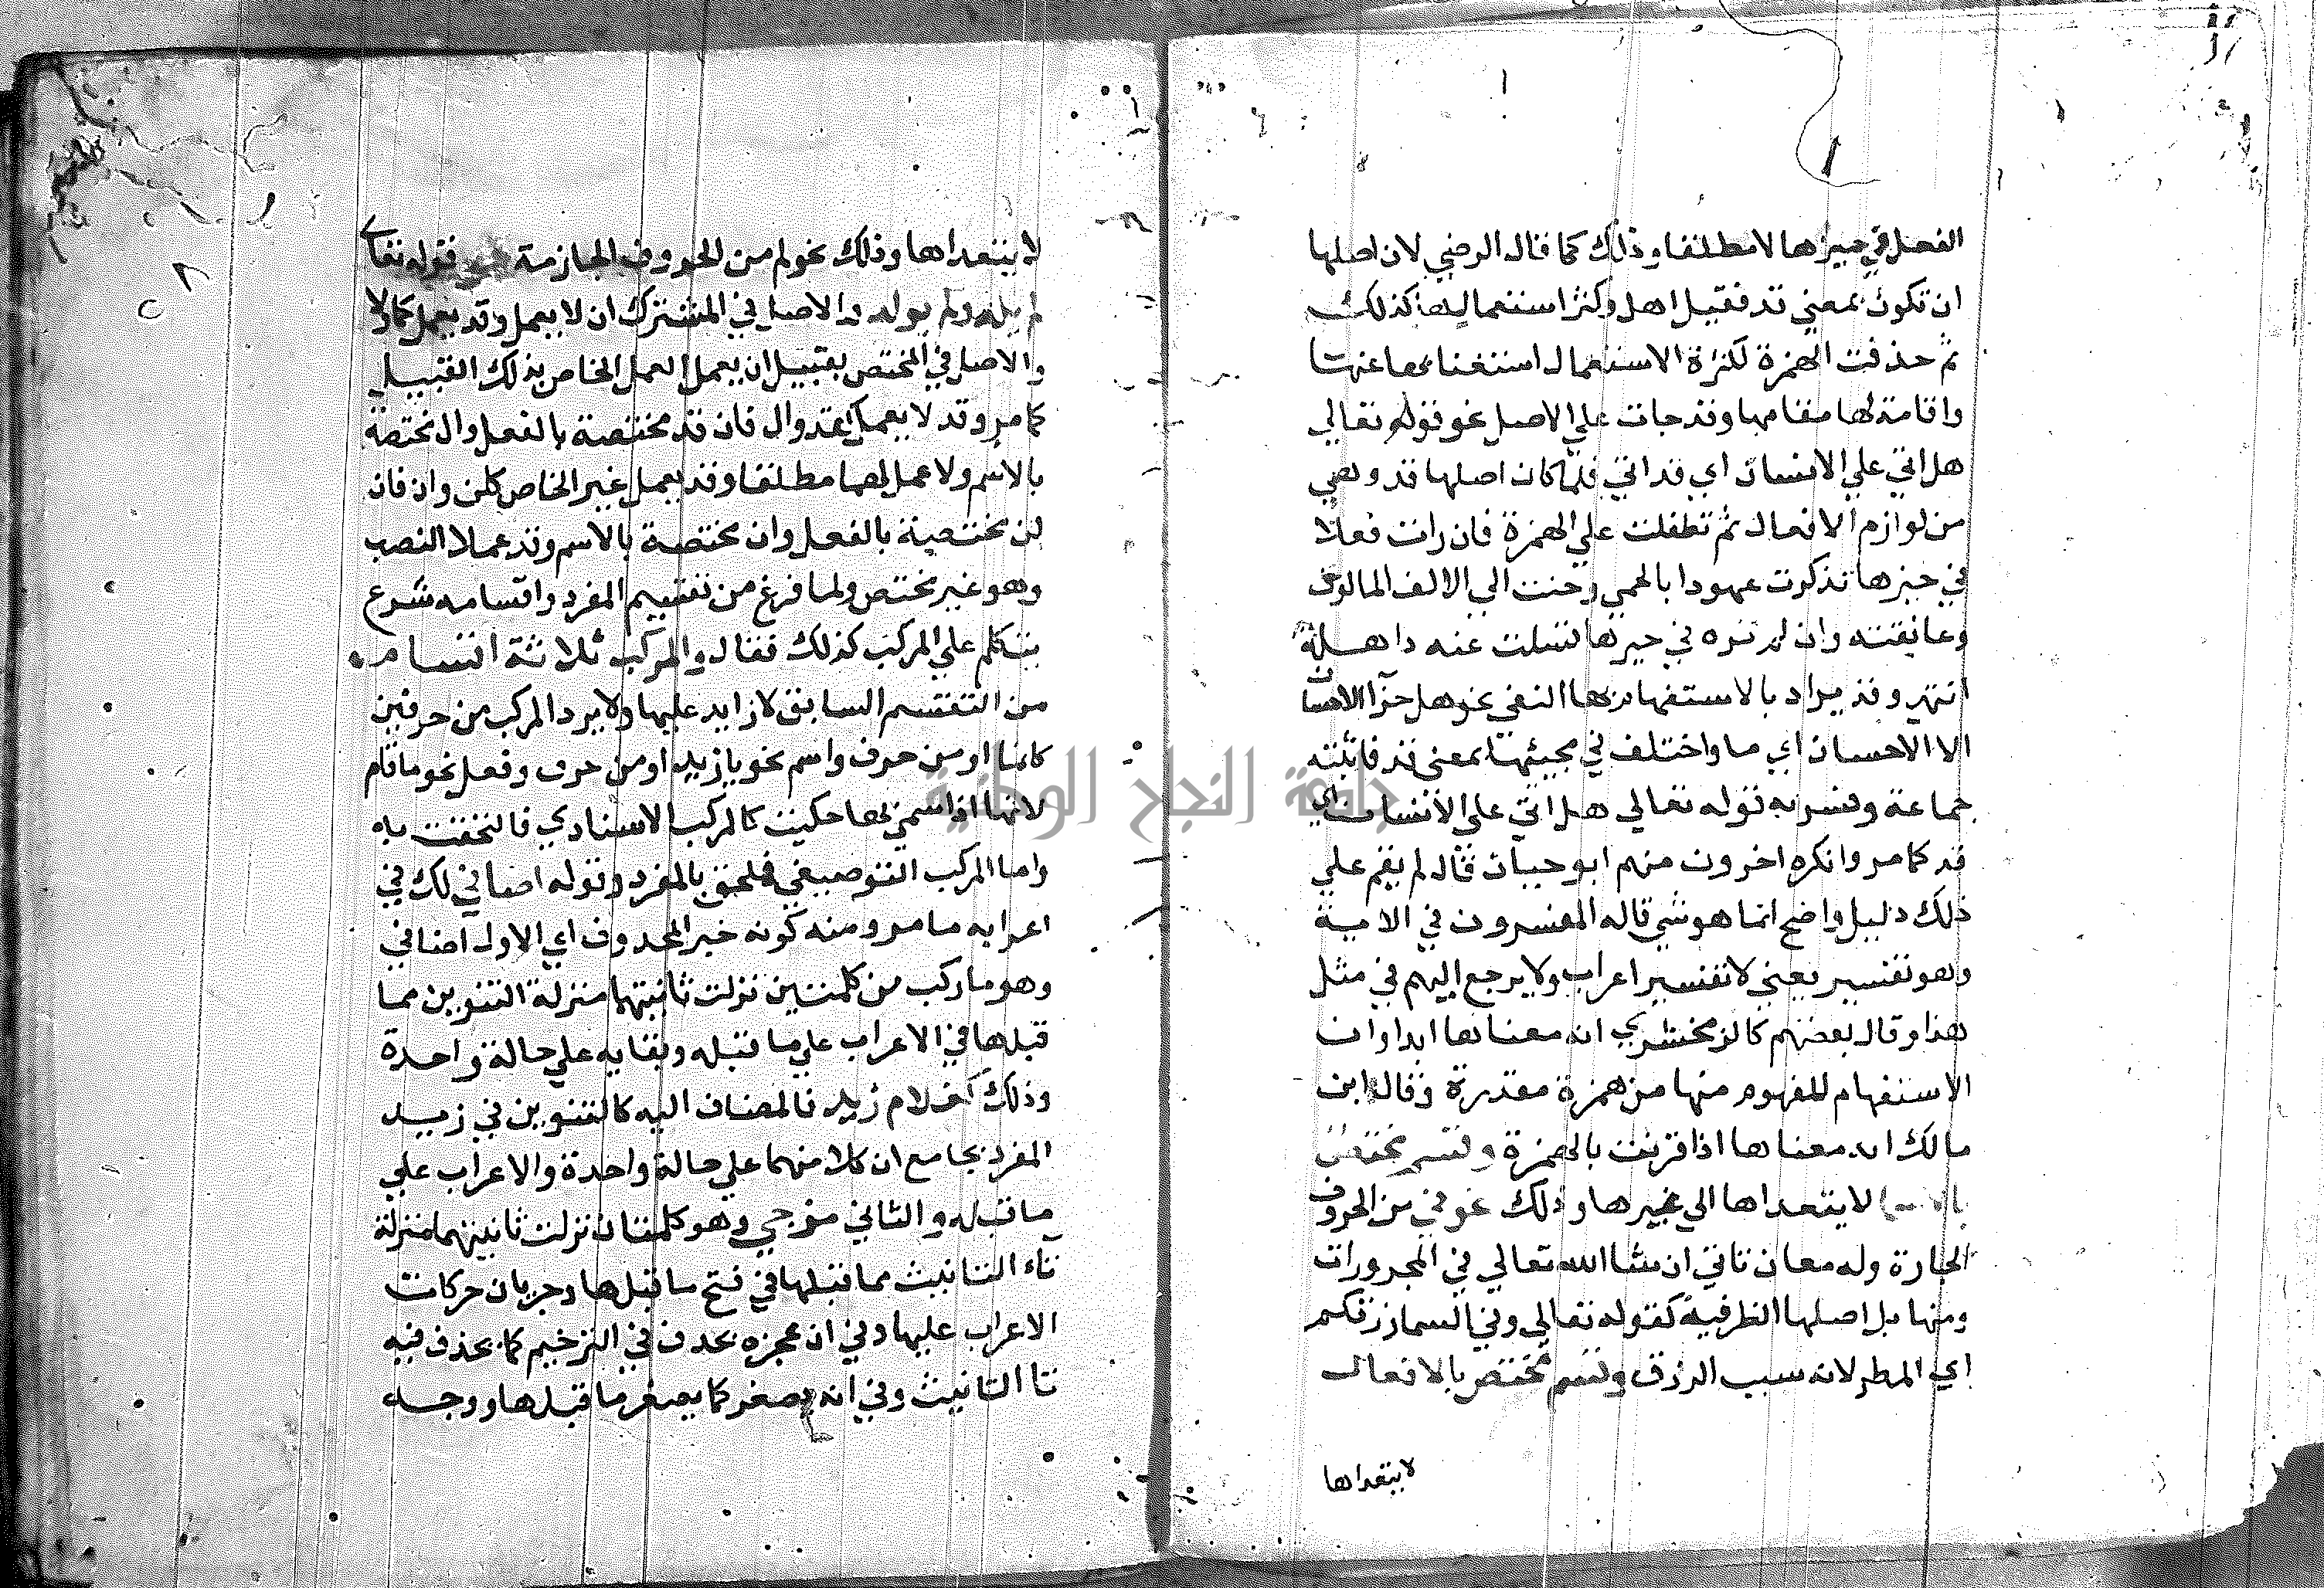 الفعل في حيزها لا مطلقا وذلك كما قال الرضي لان اصلها
ان تكون بمعني قد فقيل اهل وكثر استعمالها كذلك
ثم حذفت الهمزة لكثرة الاستعمال استغنا بها عنها
واقامة لها مقامها وقد جات علي الاصل نحو قوله تعالي
هل اتي علي الانسان اي قد اتي فلما كان اصلها قد وهي
من لوازم الافعال ثم تطفلت علي الهمزة فان رات فعلا
في حيزها تذكرت عهودا بالحمي وحنت الي الالف المالوف
وعانقته وان لم تره في حيزها تسلت عنه ذاهلة
انتهي وقد يراد بالاستفهام بها النفي نحو هل جزآ الاحسان
الا الاحسان اي ما واختلف في مجيئها بمعني قد فاثبته
جماعة وفسر به قوله تعالي هل اتي علي الانسان اي
قد كما مر وانكره اخرون منهم ابو حيان قال لم يقم علي
ذلك دليل واضح انما هو شي قاله المفسرون في الاية
وهو تفسير معني لا تفسير اعراب ولا يرجع اليهم في مثل
هذا وقال بعضهم كالزمخشري انه معناها ابدا وان
الاستفهام المفهوم منها من همزة مقدرة وقال ابن
مالك انه معناها اذا قرنت بالهمزة وقسم مختص
لا يتعداها الي غيرها وذلك نحو في من الحروف
الجارة وله معان تاتي ان شا الله تعالي في المجرورات
ومنها بل اصلها الظرفية كقوله تعالي وفي السما رزقكم
اي المطر لانه سبب الرزق وقسم مختص بالافعال
لا يتعداها
لا يتعداها وذلك نحو لم من الحروف الجازمة نحو قوله تعا
لم يلد ولم يولد والاصل في المشترك ان لا يعمل وقد يعمل كما ولا
والاصل في المختص بقبيل ان يعمل العمل الخاص بذلك القبيل
كما مر وقد لا يعمل كقد وال فان قد مختصة بالفعل وال مختصة
بالاسم ولا عمل لهما مطلقا وقد يعمل غير الخاص كلن وان فان
لن مختصة بالفعل وان مختصة بالاسم وقد عملا النصب
وهو غير مختص ولما فرغ من تقسيم المفرد واقسامه شرع
يتكلم علي المركب كذلك فقال والمركب ثلاثة اقسام
من التقسيم السابق لا زايد عليها ولا يرد المركب من حرفين
كانما او من حرف واسم نحو يا زيد او من حرف وفعل نحو ما قام
لانها اذا سمي بها حكيت كالمركب الاسنادي فالتحقت به
واما المركب التوصيفي فملحق بالمفرد وقوله اضافي لك في
اعرابه ما مر ومنه كونه خبر المحذوف اي الاول اضافي
وهو ما ركب من كلمتين نزلت ثانيتهما منزلة التنوين مما
قبلها في الاعراب علي ما قبله وبقايه علي حالة واحدة
وذلك كغلام زيد فالمضاف اليه كالتنوين في زيد
المفرد بجامع ان كلا منهما علي حالة واحدة والاعراب علي
ما قبله والثاني مزجي وهو كلمتان نزلت ثانيتهما منزلة
تآء التانيث مما قبلها في فتح ما قبلها وجريان حركات
الاعراب عليها وفي ان عجزه يحذف في الترخيم كما يحذف فيه
تا التانيث وفي انه يصغر كما يصغر ما قبلها ووجه
جامعة النجاح الوطنية